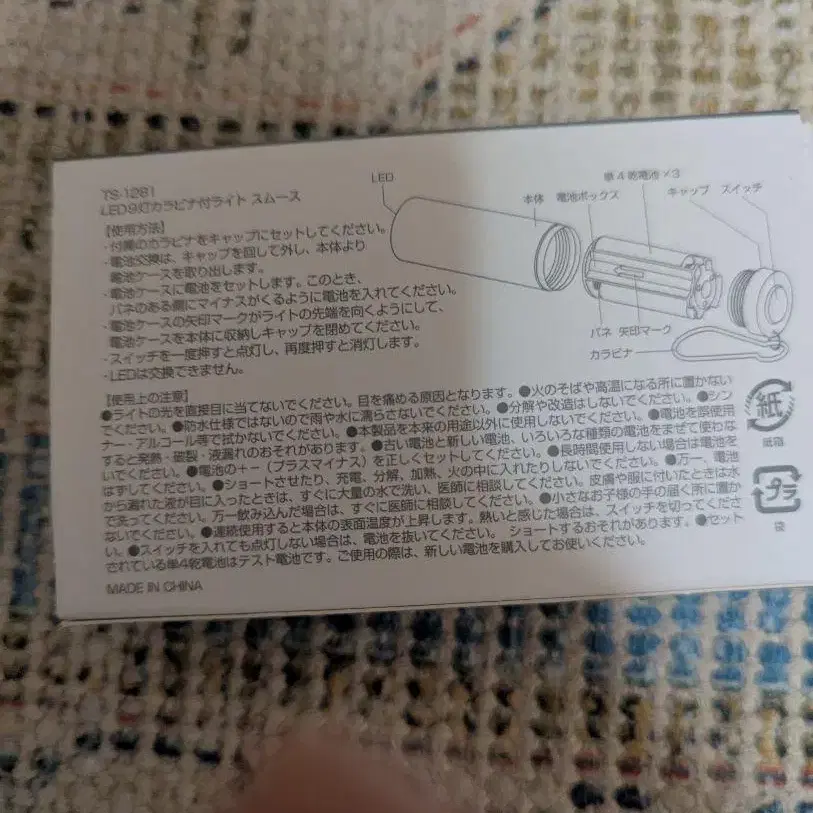 TS-1281
LED9灯カラビナ付ライト スムース
【使用方法】
・付属のカラビナをキャップにセットしてください。
・電池交換は、キャップを回して外し、本体より
電池ケースを取り出します。
・電池ケースに電池をセットします。このとき、
バネのある側にマイナスがくるように電池を入れてください。
・電池ケースの矢印マークがライトの先端を向くようにして、
電池ケースを本体に収納しキャップを閉めてください。
・スイッチを一度押すと点灯し、再度押すと消灯します。
・LEDは交換できません。
LED
本体
電池ボックス
単4乾電池×3
キャップ
スイッチ
バネ
矢印マーク
カラビナ
【使用上の注意】
●ライトの光を直接目に当てないでください。目を痛める原因となります。●火のそばや高温になる所に置かない
でください。●防水仕様ではないので雨や水に濡らさないでください。●分解や改造はしないでください。●シン
ナー・アルコール等で拭かないでください。●本製品を本来の用途以外に使用しないでください。●電池を誤使用
すると発熱・破裂・液漏れのおそれがあります。●古い電池と新しい電池、いろいろな種類の電池をまぜて使わな
いでください。●電池の＋－（プラスマイナス）を正しくセットしてください。●長時間使用しない場合は電池を
はずしてください。●ショートさせたり、充電、分解、加熱、火の中に入れたりしないでください。●万一、電池
から漏れた液が目に入ったときは、すぐに大量の水で洗い、医師に相談してください。皮膚や服に付いたときは水
で洗ってください。万一飲み込んだ場合は、すぐに医師に相談してください。●小さなお子様の手の届く所に置か
ないでください。●連続使用すると本体の表面温度が上昇します。熱いと感じた場合は、スイッチを切ってくださ
い。●スイッチを入れても点灯しない場合は、電池を抜いてください。 ショートするおそれがあります。●セット
されている単4乾電池はテスト電池です。ご使用の際は、新しい電池を購入してお使いください。
MADE IN CHINA
紙
紙箱
プラ
袋